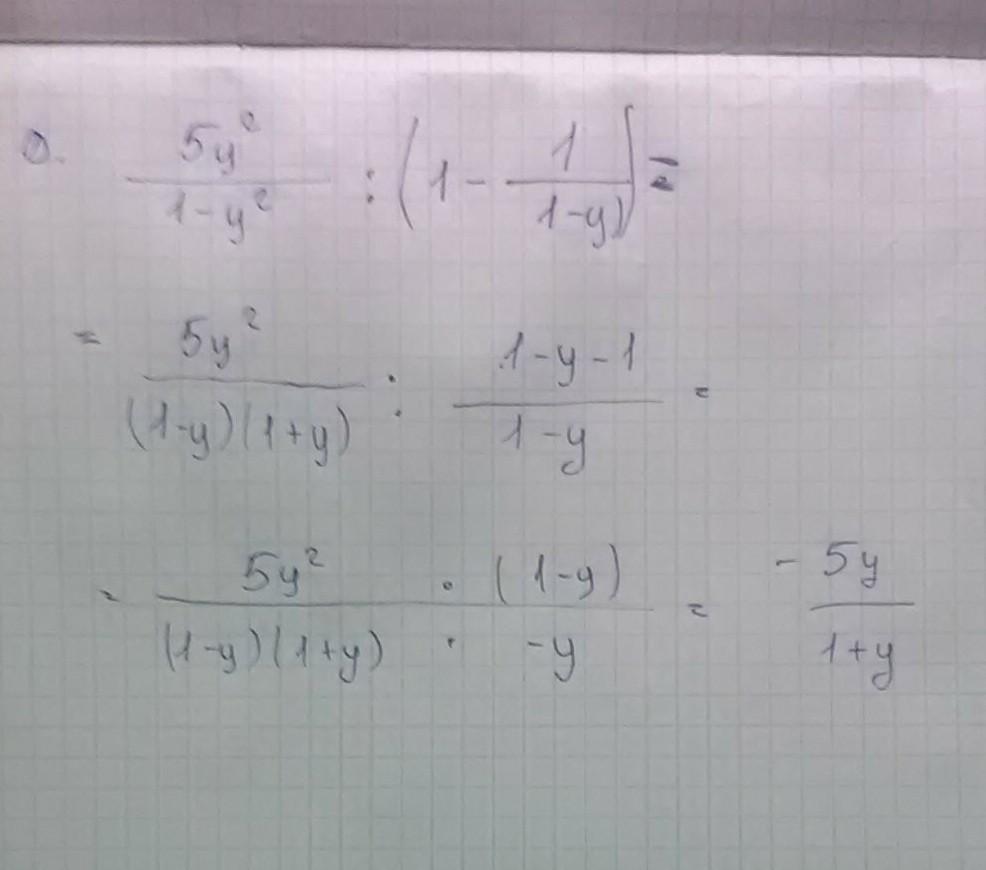 5y² / 1-y² : (1 - 1 / 1-y) =
= 5y² / (1-y)(1+y) : 1-y-1 / 1-y =
= 5y² · (1-y) / (1-y)(1+y) · -y = - 5y / 1+y